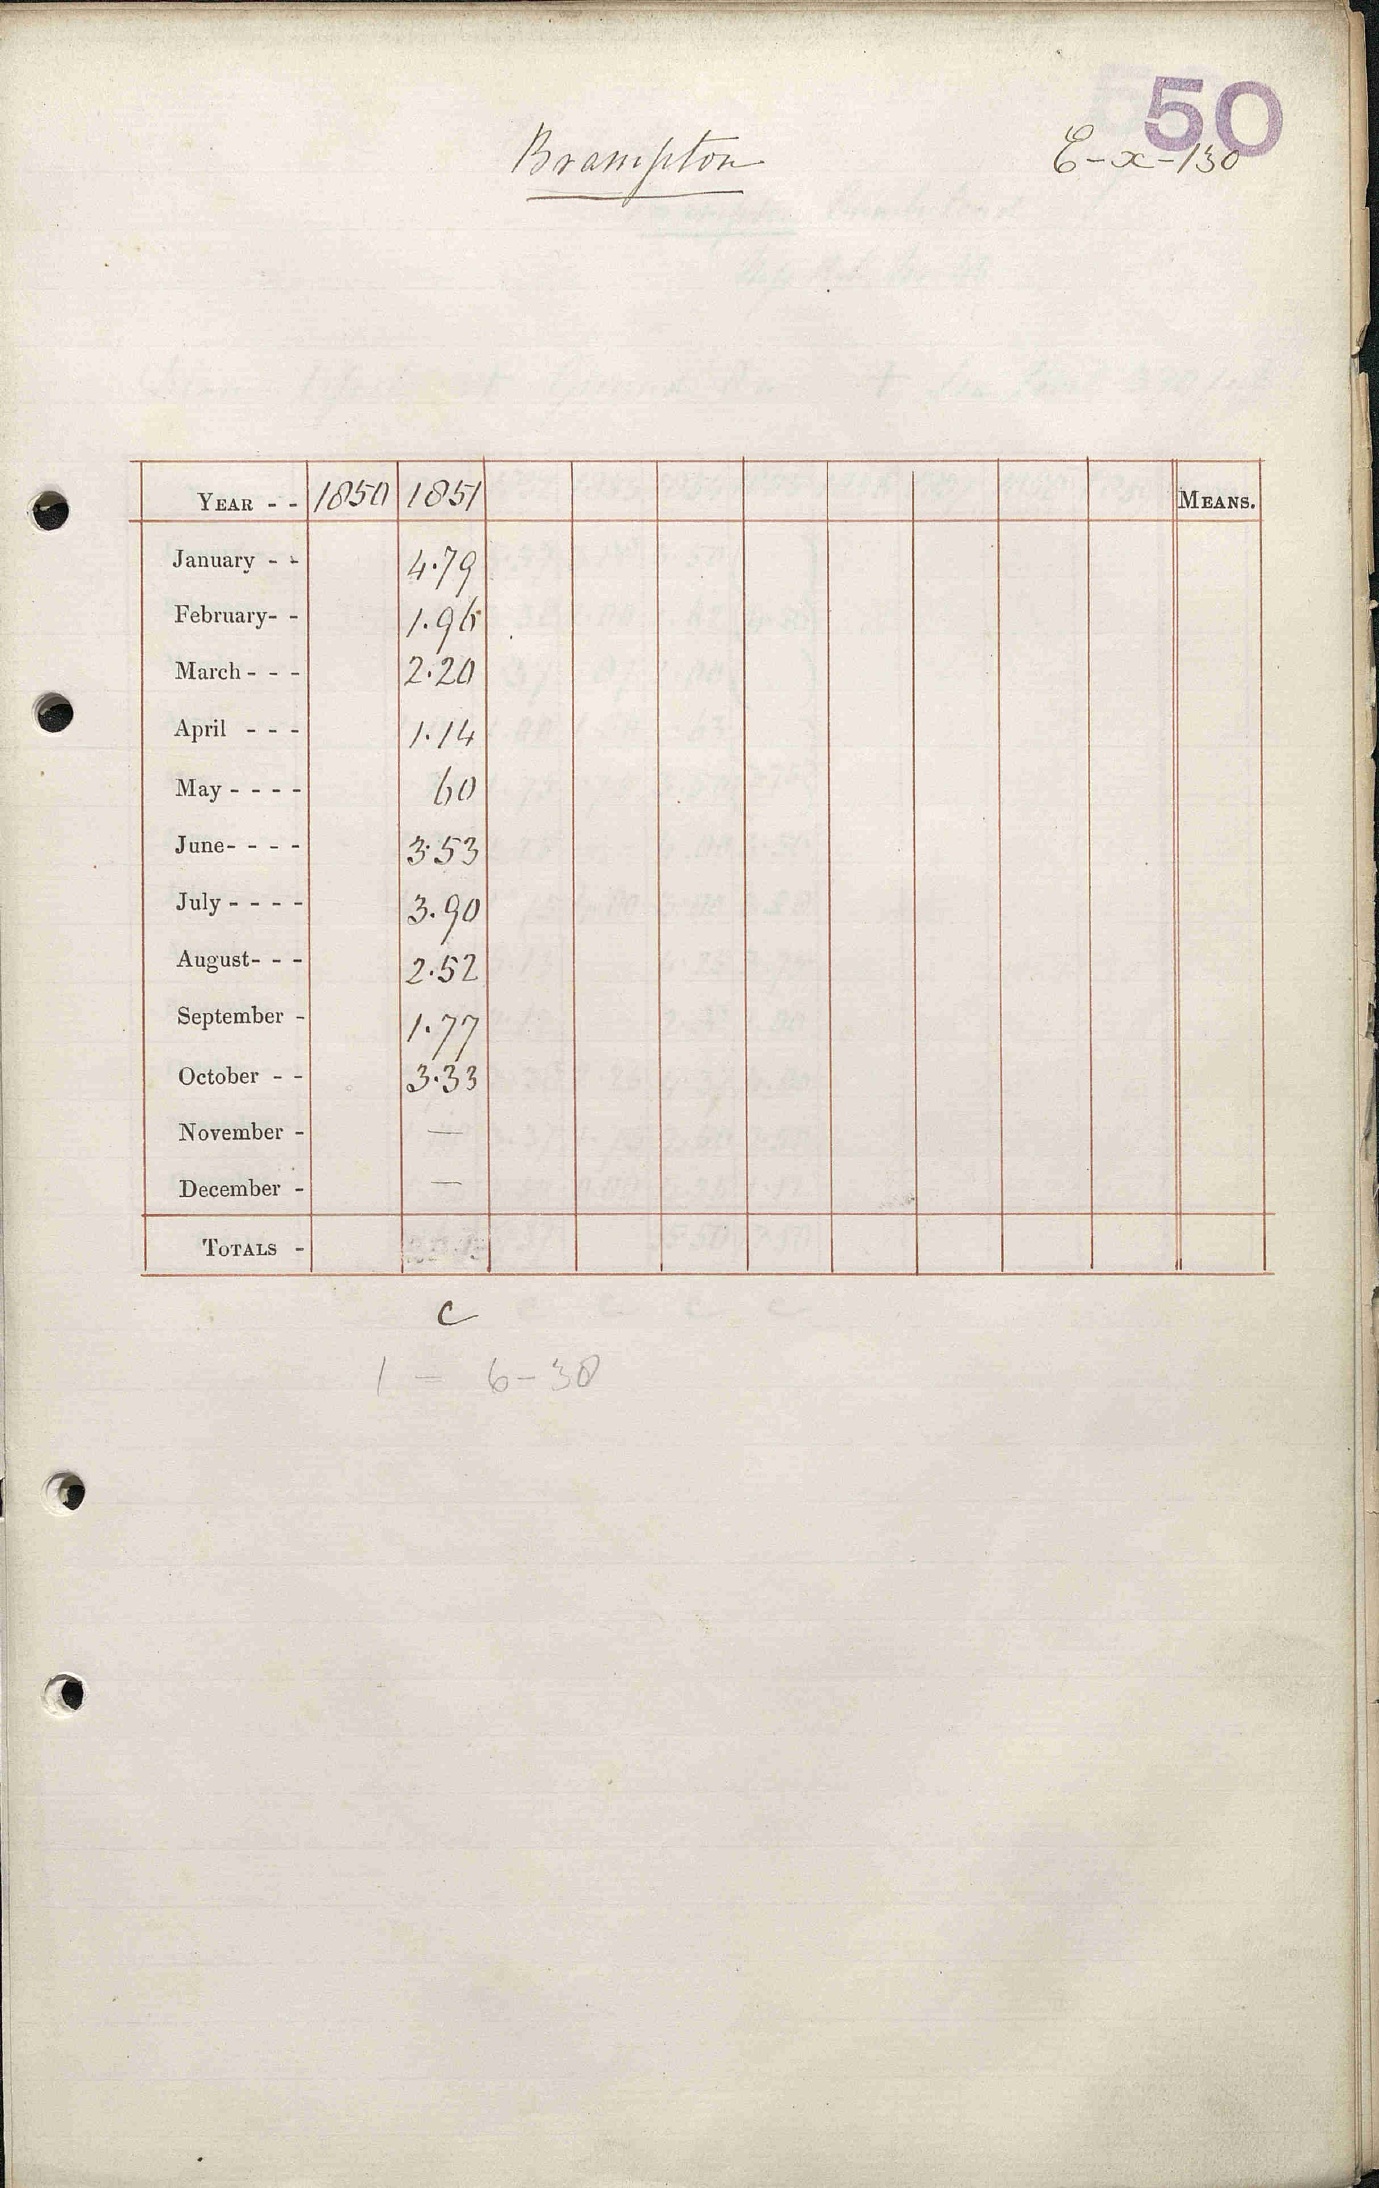 50
Brampton E-x-130
YEAR - - 1850 1851 MEANS.
January - - 4.79
February- - 1.96
March - - - 2.20
April - - - 1.14
May - - - - 60
June- - - - 3.53
July - - - - 3.90
August- - - 2.52
September - 1.77
October - - 3.33
November - —
December - —
TOTALS -
C
1 = 6-30